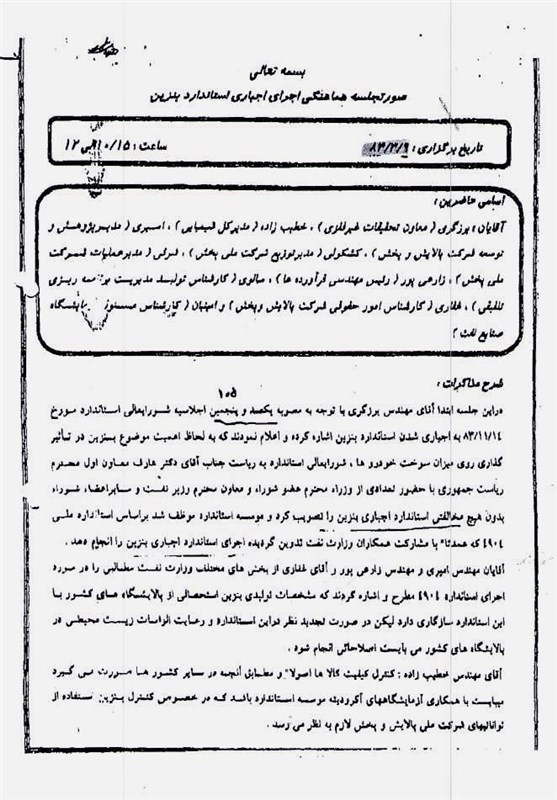 بسمه تعالی
صورتجلسه هماهنگی اجرای اجباری استاندارد بنزین
تاریخ برگزاری : ۸۴/۳/۹ ساعت : ۱۰/۱۵ الی ۱۲
اسامی حاضرین :
آقایان : برزگری ( معاون تحقیقات غیرفلزی ) ، خطیب زاده ( مدیرکل شیمیایی ) ، امیری ( مدیرپژوهش و
توسعه شرکت پالایش و پخش ) ، کشکولی ( مدیرتوزیع شرکت ملی پخش ) ، ( مدیرعملیات شرکت
ملی پخش ) ، زارعی پور ( رئیس مهندسی فرآورده ها ) ، ( کارشناس تولید مدیریت برنامه ریزی
تلفیقی ) ، غفاری ( کارشناس امور حقوقی شرکت پالایش وپخش ) و امینیان ( کارشناس
صنایع نفت )
طرح مذاکرات :
۱۰۵
دراین جلسه ابتدا آقای مهندس برزگری با توجه به مصوبه یکصد و پنجمین اجلاسیه شورایعالی استاندارد مورخ
۸۳/۱۱/۱۴ به اجباری شدن استاندارد بنزین اشاره کرده و اعلام نمودند که به لحاظ اهمیت موضوع بنزین در تأثیر
گذاری روی میزان سوخت خودرو ها ، شورایعالی استاندارد به ریاست جناب آقای دکتر عارف معاون اول محترم
ریاست جمهوری با حضور تعدادی از وزراء محترم عضو شوراء و معاون محترم وزیر نفت و سایراعضاء شوراء
بدون هیچ مخالفتی استاندارد اجباری بنزین را تصویب کرد و موسسه استاندارد موظف شد براساس استاندارد ملی
۴۹۰۴ که عمدتا" با مشارکت همکاران وزارت نفت تدوین گردیده اجرای استاندارد اجباری بنزین را انجام دهد .
آقایان مهندس امیری و مهندس زارعی پور و آقای غفاری از بخش های مختلف وزارت نفت مطالبی را در مورد
اجرای استاندارد ۴۹۰۴ مطرح و اشاره کردند که مشخصات تولیدی بنزین استحصالی از پالایشگاه های کشور با
این استاندارد سازگاری دارد لیکن در صورت تجدید نظر دراین استاندارد و رعایت الزامات زیست محیطی در
پالایشگاه های کشور می بایست اصلاحاتی انجام شود .
آقای مهندس خطیب زاده : کنترل کیفیت کالا ها اصولا" و مطابق آنچه در سایر کشور ها صورت می گیرد
میبایست با همکاری آزمایشگاههای آکرودیته موسسه استاندارد باشد که در خصوص کنترل بنزین استفاده از
توانائیهای شرکت ملی پالایش و پخش لازم به نظر می رسد .